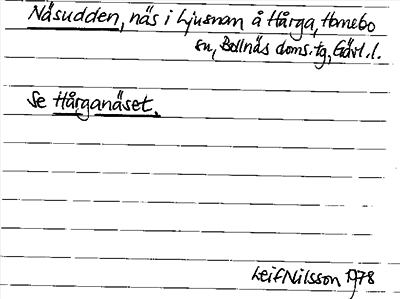 Näsudden, näs i Ljusnan å Hårga, Hanebo
sn, Bollnäs doms.tg, Gävl.l.
Se Hårganäset.
Leif Nilsson 1978